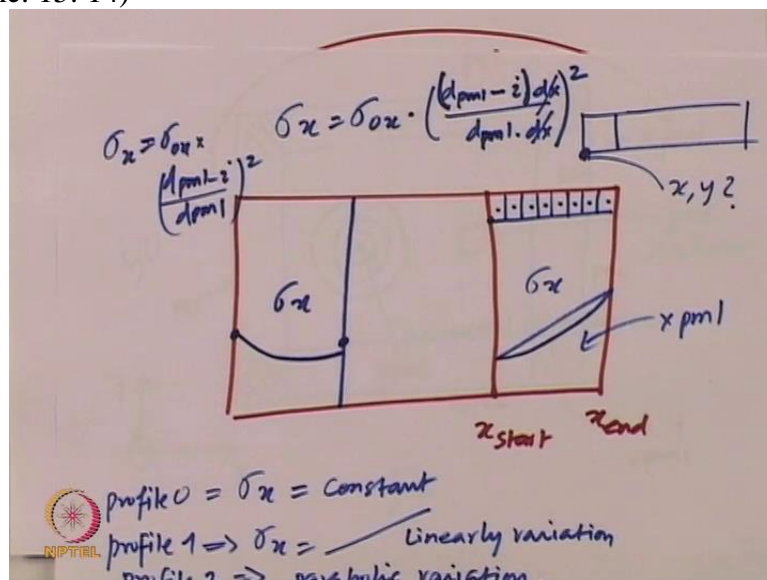 ne. 13: 14)
σx = σox · ((dpml - i) dx / dpml · dx)²
σx = σox × (dpml - i / dpml)²
x, y ?
σx
σx
x pml
x start
x end
profile 0 = σx = constant
profile 1 ⇒ σx = Linearly variation
profile 2 ⇒ parabolic variation
NPTEL